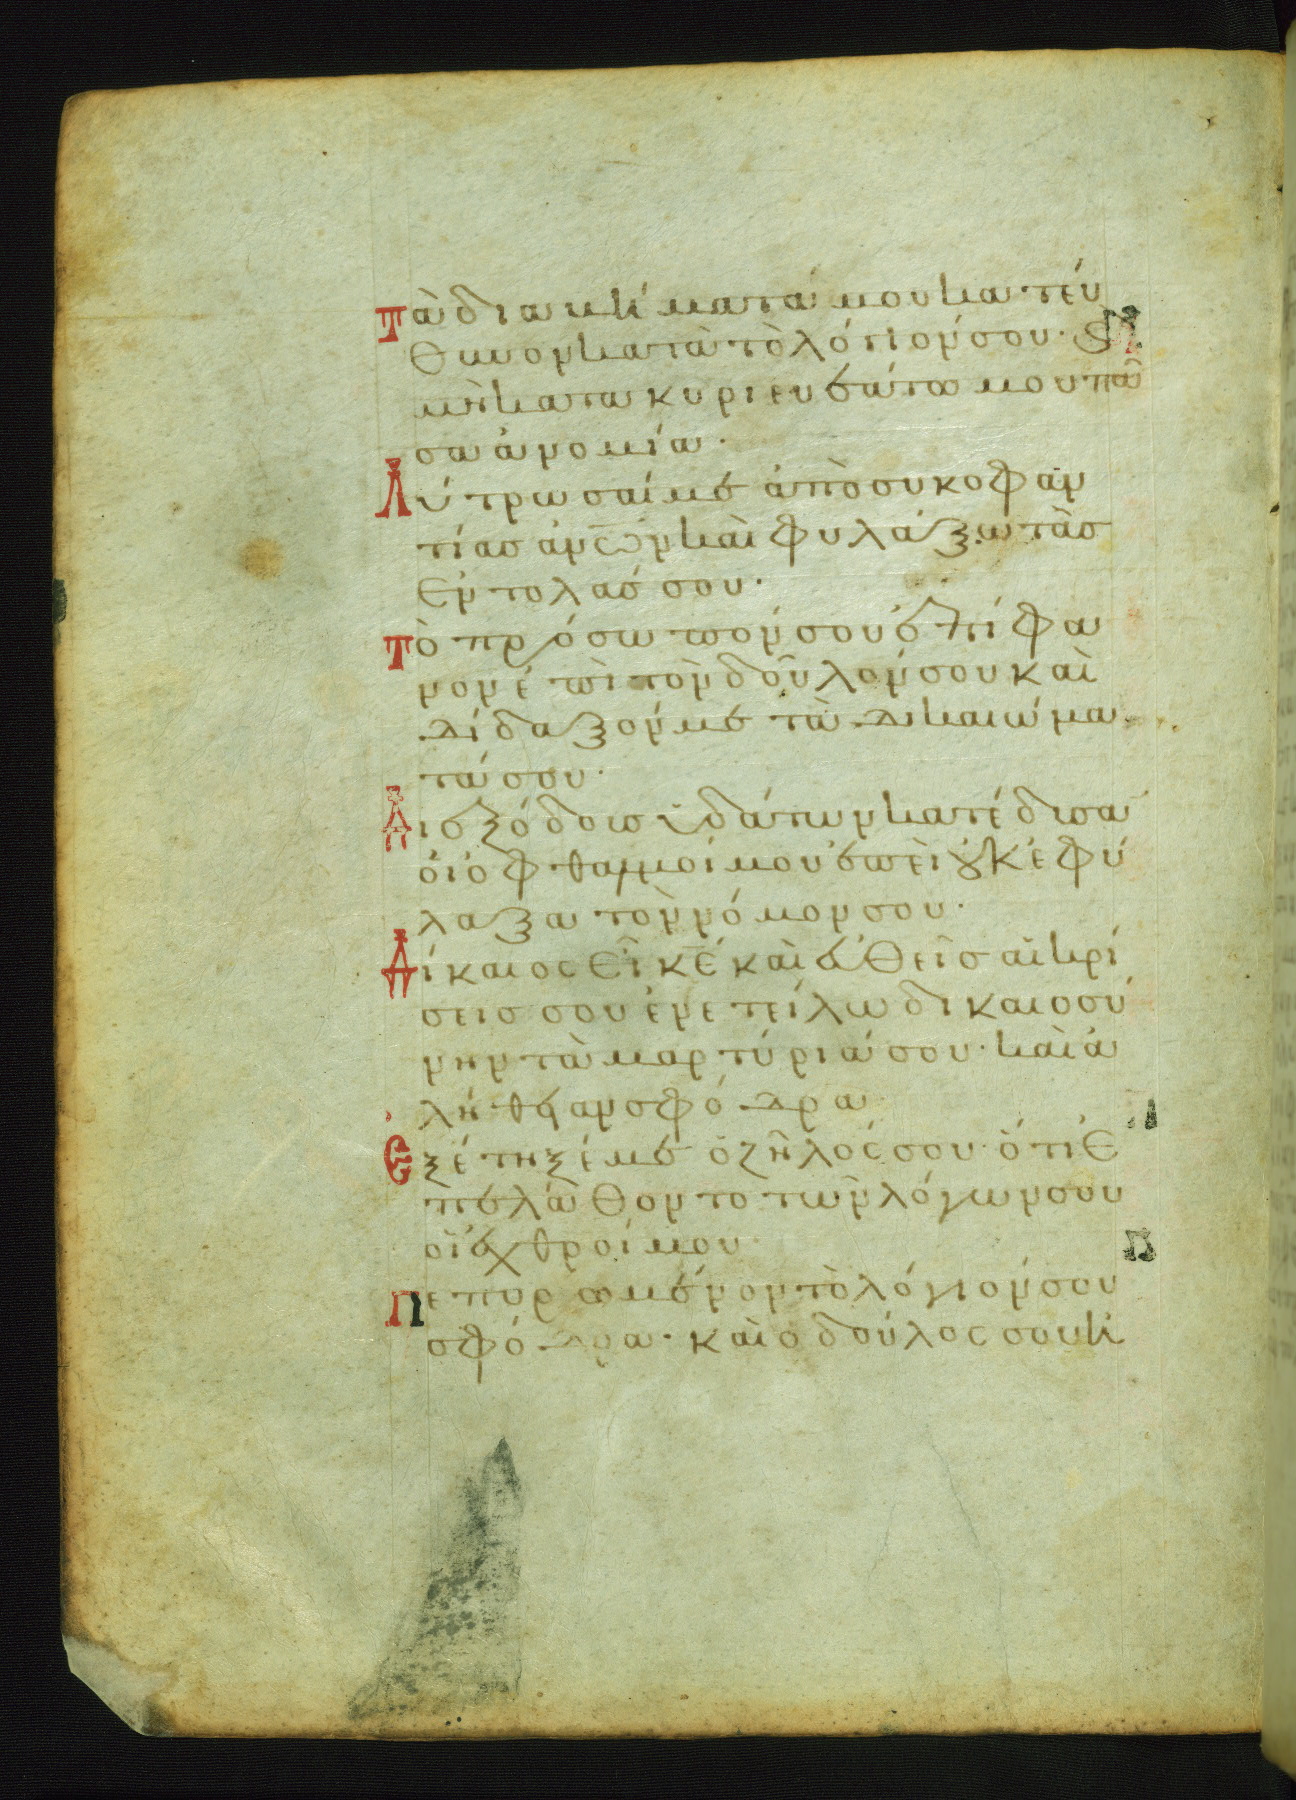 Τὰ διαβήματά μου κατεύ
θυνον κατὰ τὸ λόγιόν σου· καὶ
μὴ κατακυριευσάτω μου πᾶ
σα ἀνομία·
Λύτρωσαί με ἀπὸ συκοφαν
τίας ἀνῶν καὶ φυλάξω τὰς
ἐντολάς σου·
Τὸ πρόσωπόν σου ἐπίφα
νον ἐπὶ τὸν δοῦλον σου καὶ
δίδαξόν με τὰ δικαιώμα
τά σου·
Διεξόδοις ὑδάτων κατέδισα
ὁι ὀφθαλμοί μου ἐπεὶ οὐκ ἐφύ
λαξα τὸν νόμον σου·
Δίκαιος εἶ κε καὶ εὐθεῖς αἱ κρί
σεις σου ἐνετείλω δικαιοσύ
νην τὰ μαρτύριά σου· καὶ ἀ
λήθηαν σφόδρα
Ἐξέτηξέ με ὁ ζῆλός σου· ὅτι ἐ
πελάθοντο τῶν λόγων σου
οἱ ἐχθροί μου·
Πεπυρωμένον τὸ λόγιόν σου
σφόδρα· καὶ ὁ δοῦλος σου ἠ